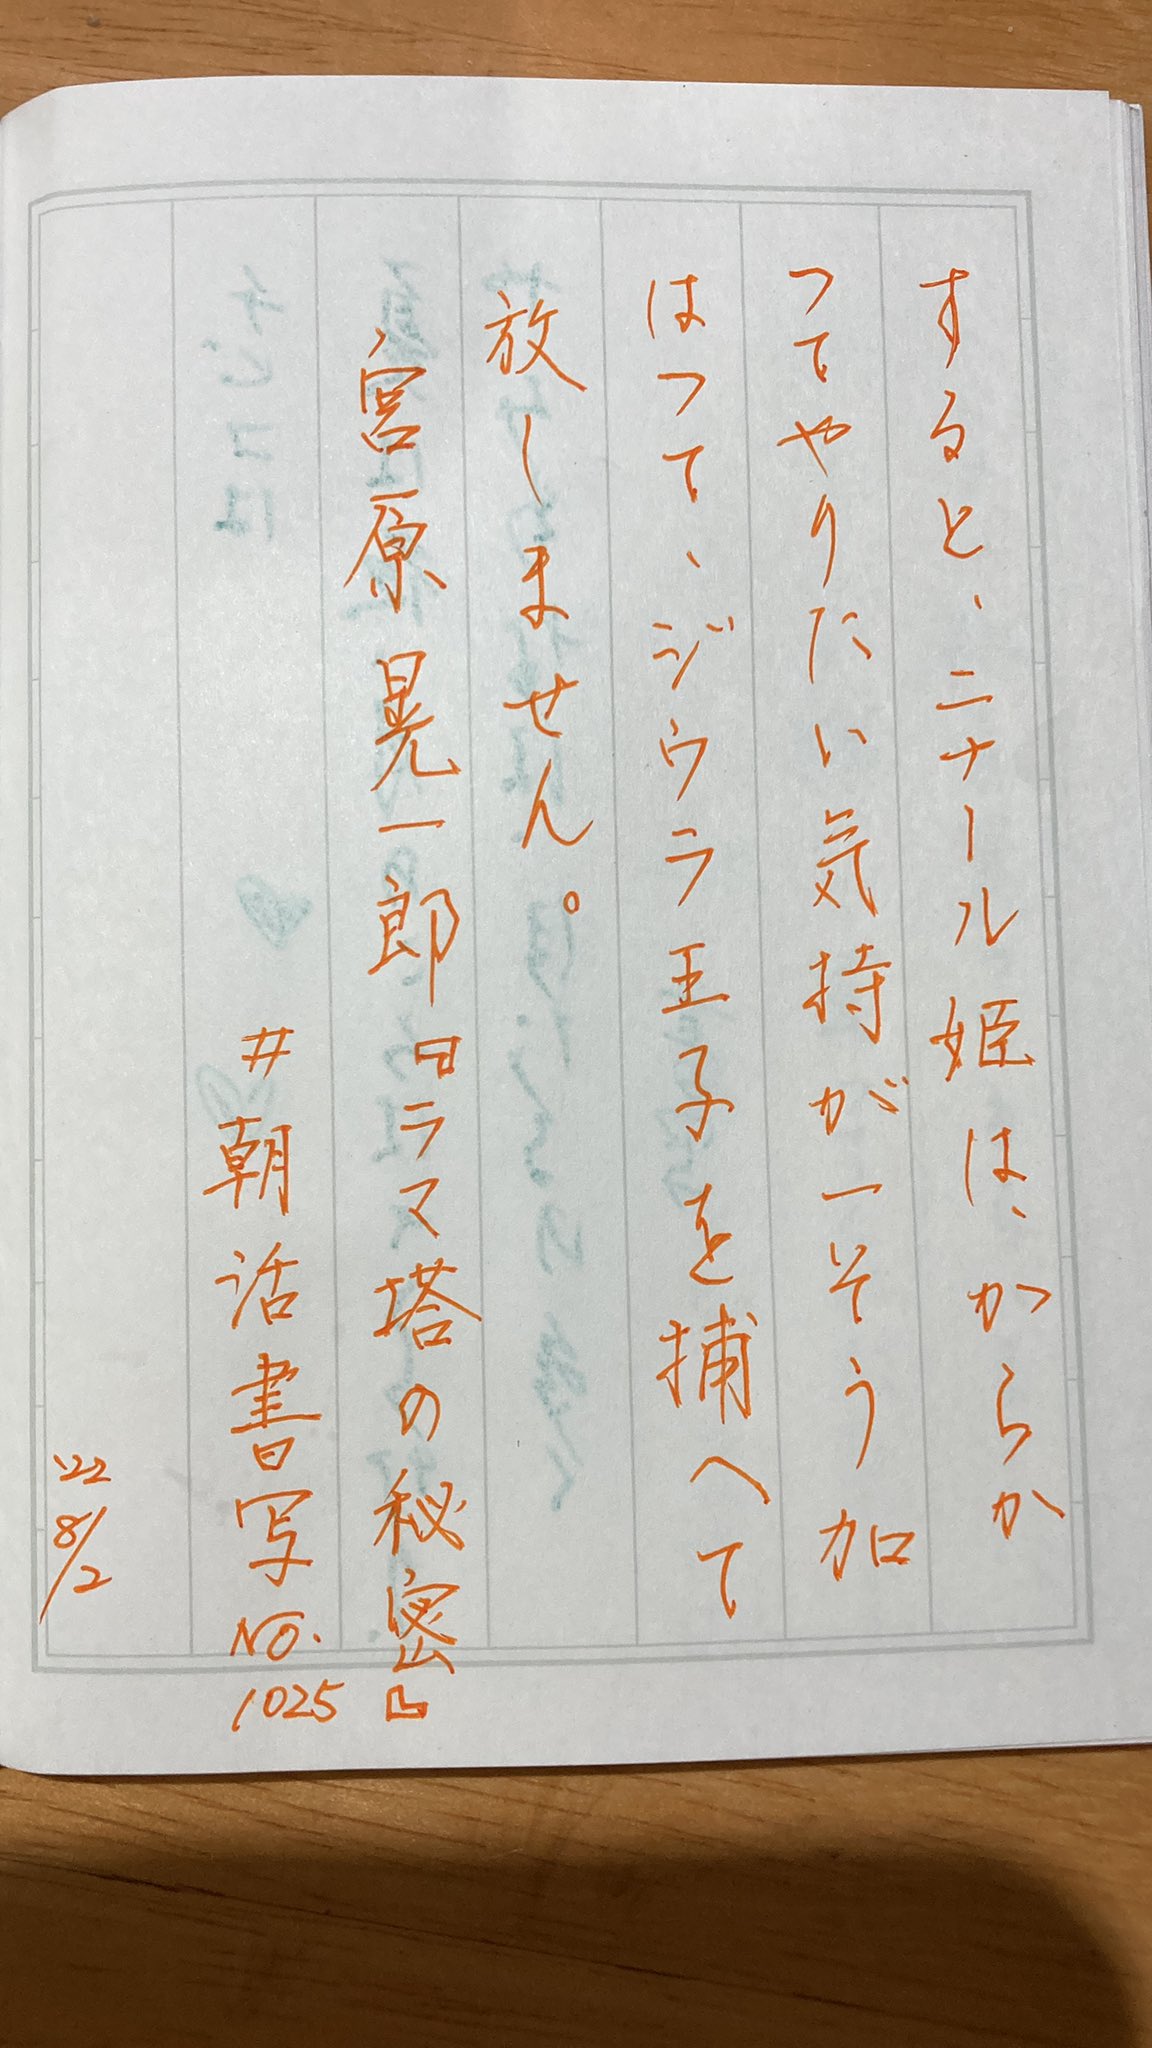 すると、ニナール姫は、からか
つてやりたい気持が一そう加
はつて、ジウラ王子を捕へて
放しません。
宮原晃一郎『ラマ塔の秘密』
#朝活書写No.1025
'22 8/2